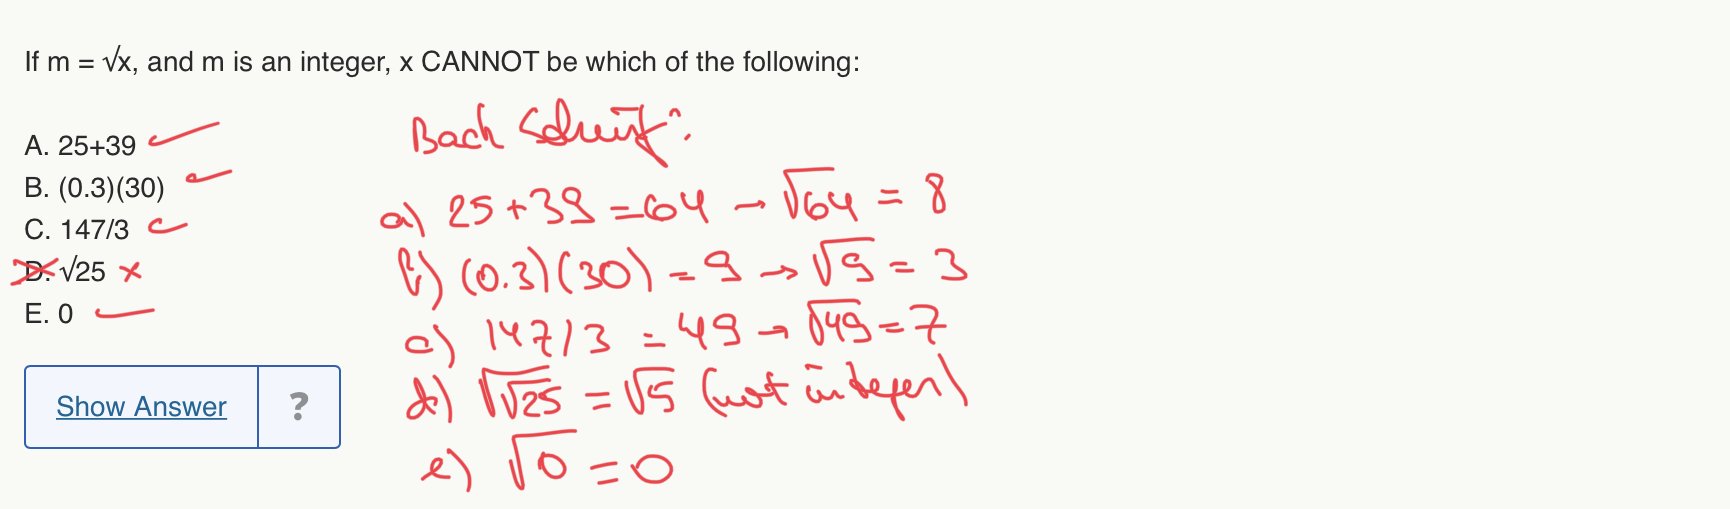 If m = √x, and m is an integer, x CANNOT be which of the following:
A. 25+39
B. (0.3)(30)
C. 147/3
D. √25 x
E. 0
Show Answer
?
Back Solving:
a) 25+39=64 → √64 = 8
b) (0.3)(30) = 9 → √9 = 3
c) 147/3 = 49 → √49 = 7
d) √√25 = √5 (not integer)
e) √0 = 0